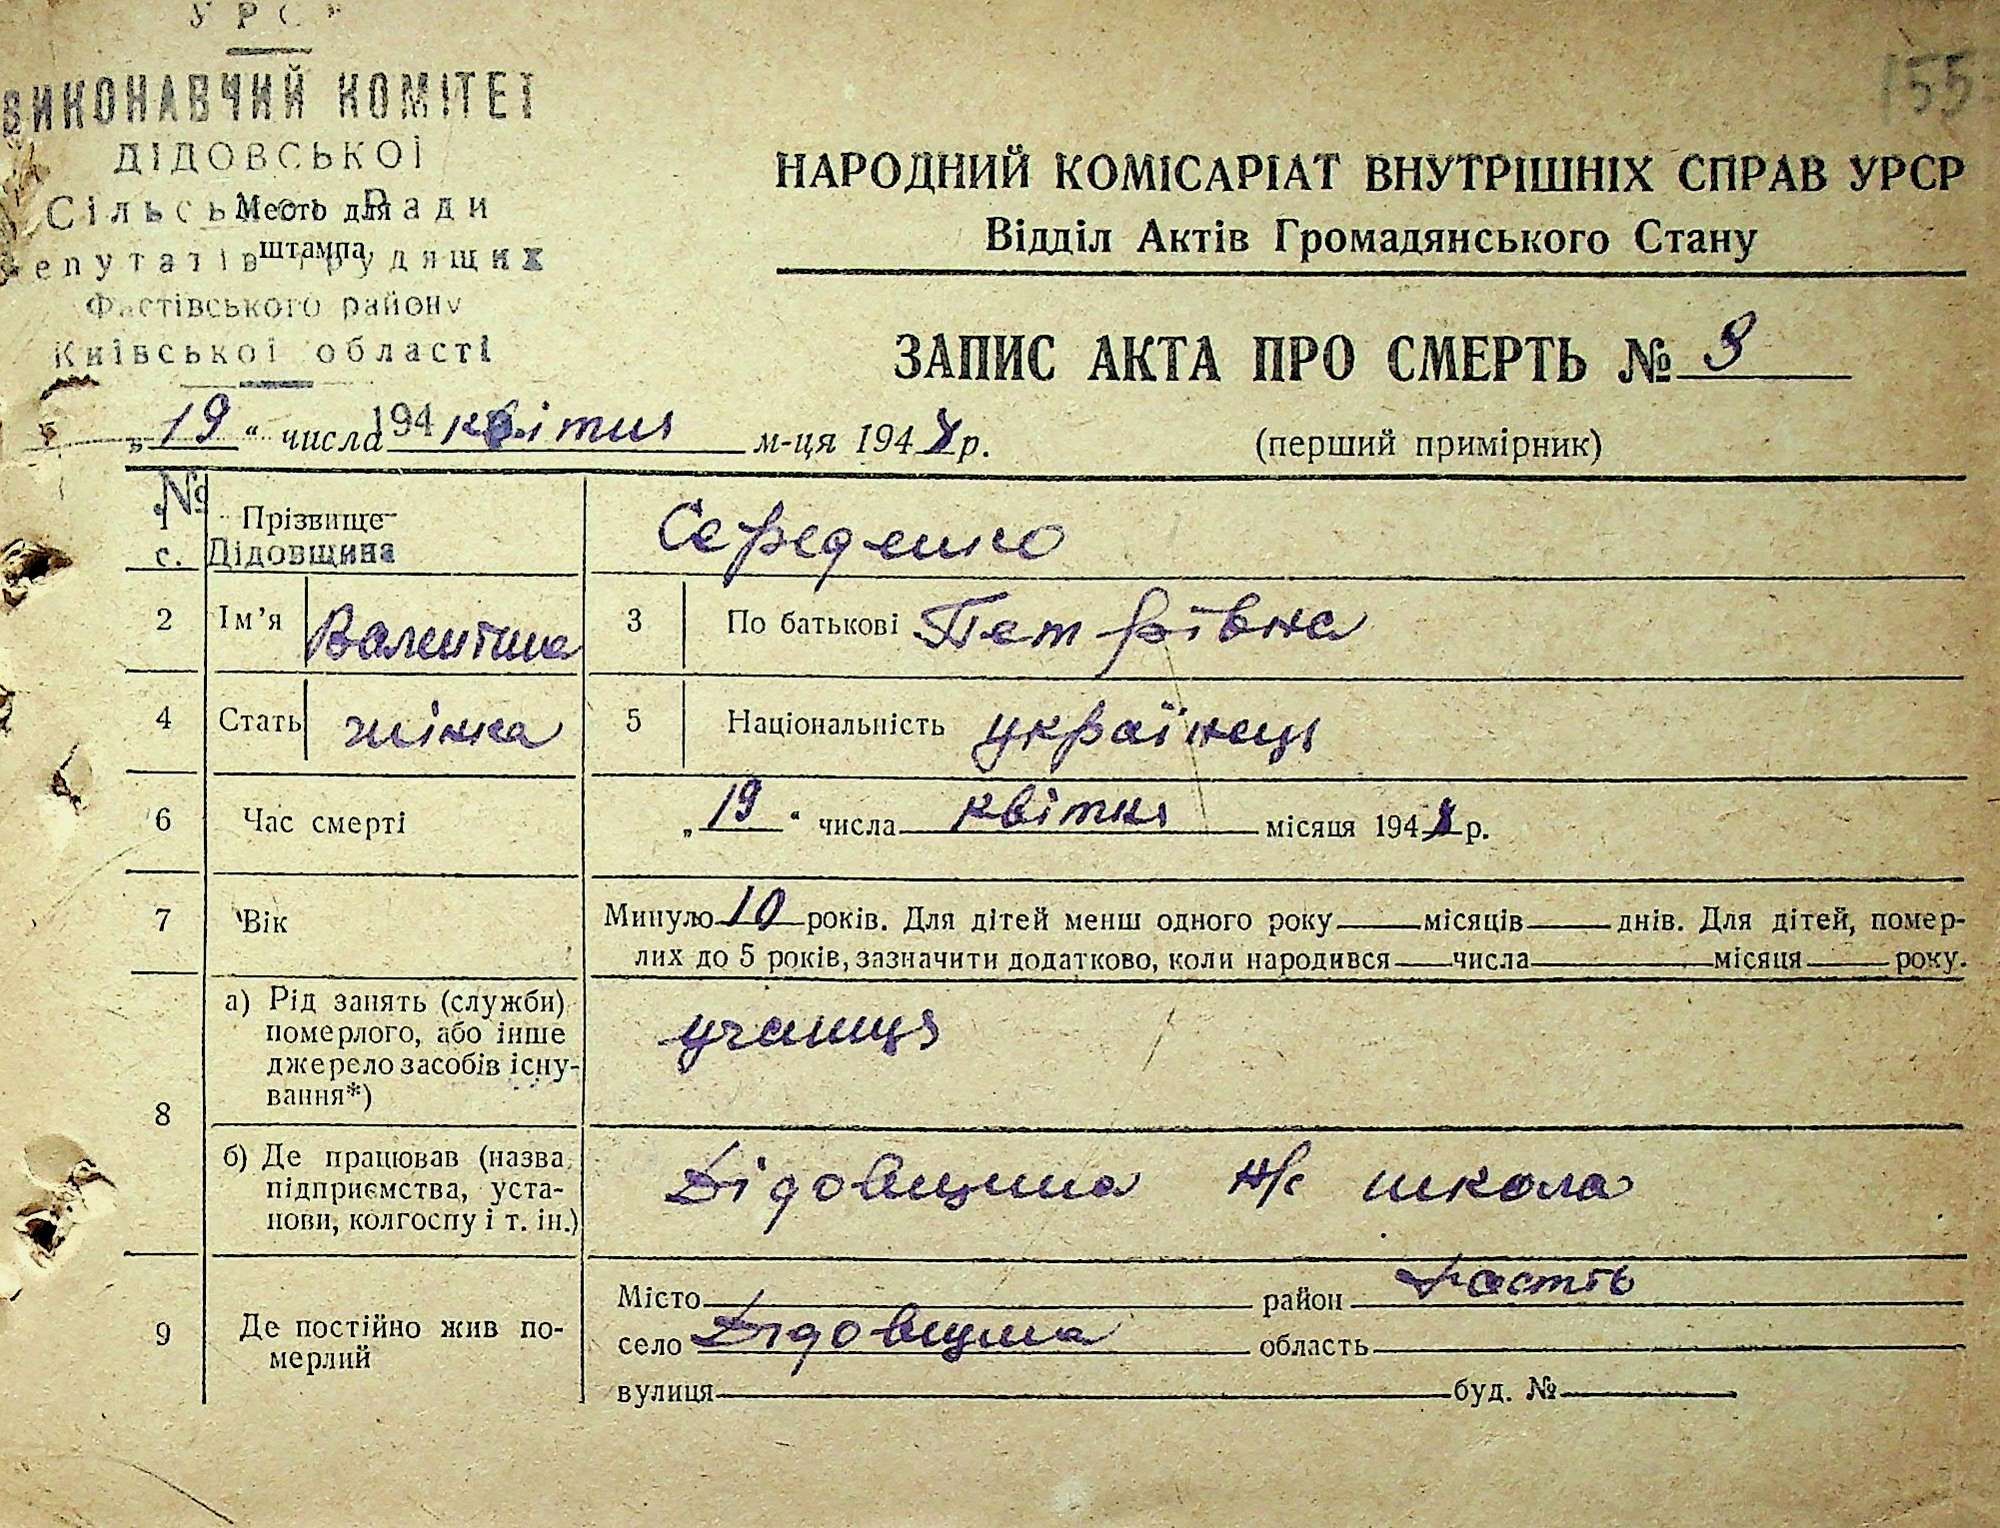 УРСР
ВИКОНАВЧИЙ КОМІТЕТ
ДІДОВСЬКОЇ
Сільської Ради
Место для
штампа
депутатів трудящих
Фастівського району
Київської області
155
НАРОДНИЙ КОМІСАРІАТ ВНУТРІШНІХ СПРАВ УРСР
Відділ Актів Громадянського Стану
ЗАПИС АКТА ПРО СМЕРТЬ № 9
„19“ числа 194 квітня м-ця 194 р.
(перший примірник)
№
1 Прізвище Середенко
с. Дідовщина
2 Ім'я Валентина 3 По батькові Петрівна
4 Стать жінка 5 Національність українець
6 Час смерті „19“ числа квітня місяця 194 р.
7 Вік Минуло 10 років. Для дітей менш одного року місяців днів. Для дітей, помер-
лих до 5 років, зазначити додатково, коли народився числа місяця року.
8 а) Рід занять (служби)
померлого, або інше
джерело засобів існу-
вання*)
учениця
б) Де працював (назва
підприємства, уста-
нови, колгоспу і т. ін.)
Дідовщина н/с школа
9 Де постійно жив по-
мерлий
Місто район Фастів
село Дідовщина область
вулиця буд. №